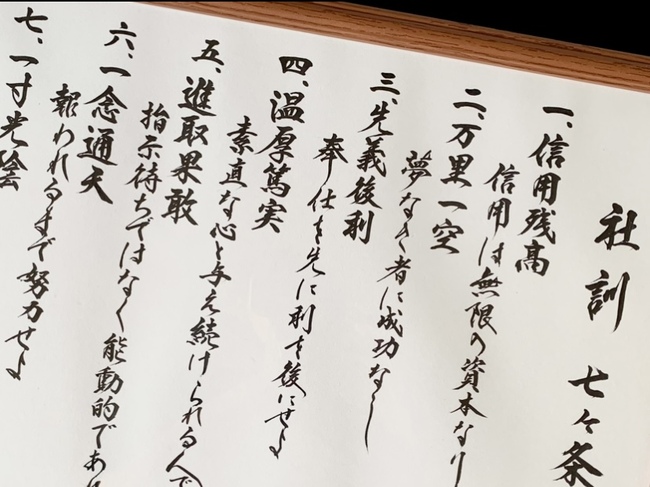 社訓 七々条
一、信用残高
信用は無限の資本なり
二、万里一空
夢なき者に成功なし
三、先義後利
奉仕を先に利を後にせよ
四、温厚篤実
素直な心と与え続けられる人で
五、進取果敢
指示待ちではなく能動的であれ
六、一念通天
報われるまで努力せよ
七、一寸光陰